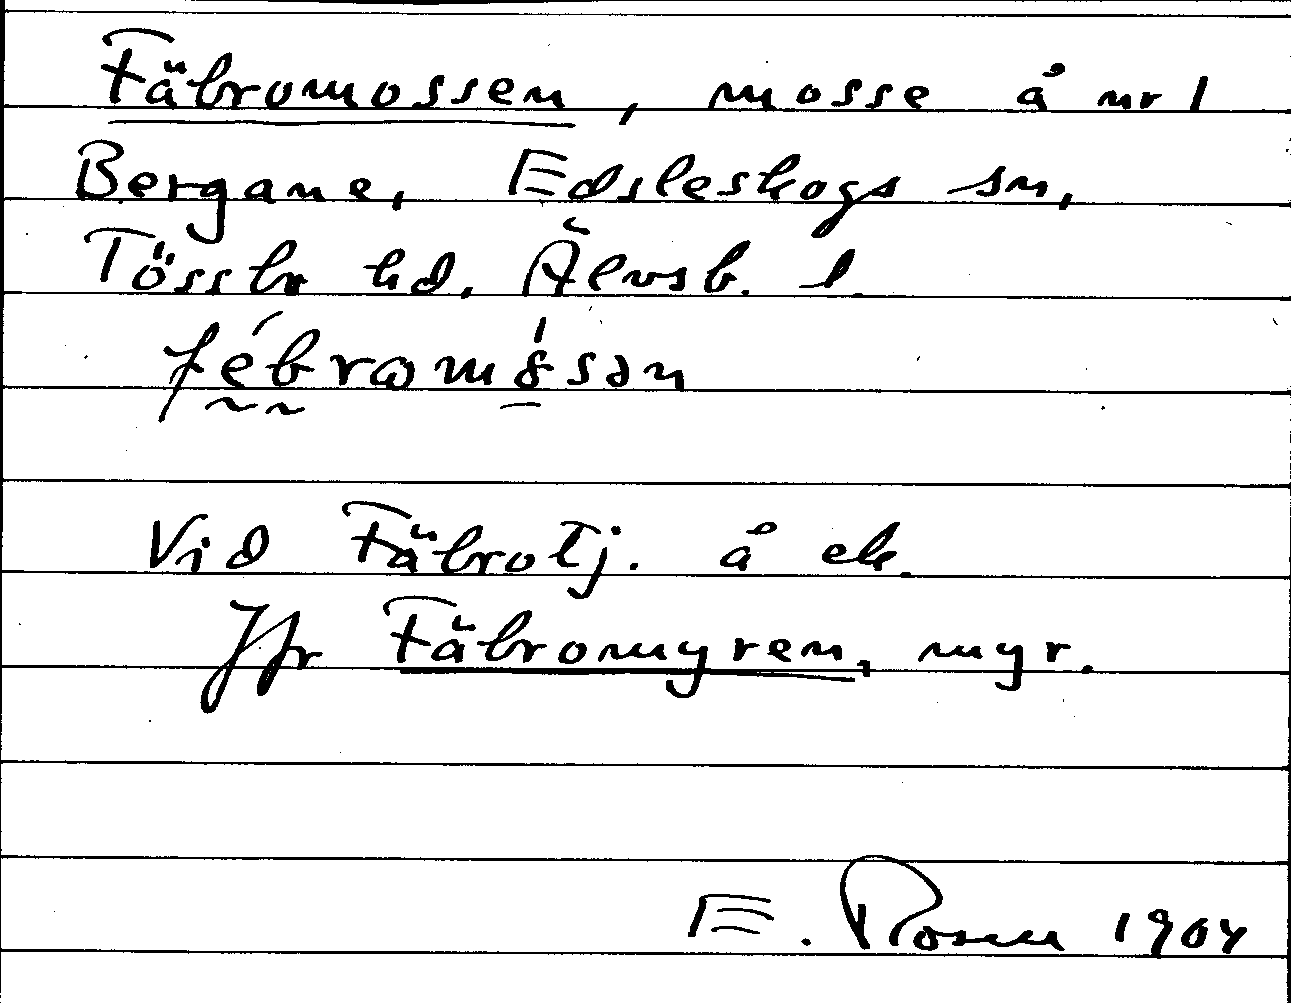 Fäbromossen, mosse å nr 1
Bergane, Edsleskogs sn,
Tössbr hd. Älvsb. l.
Vid Fäbrotj. å ek.
Jfr Fäbromyren, myr.
E. Rosen 1904